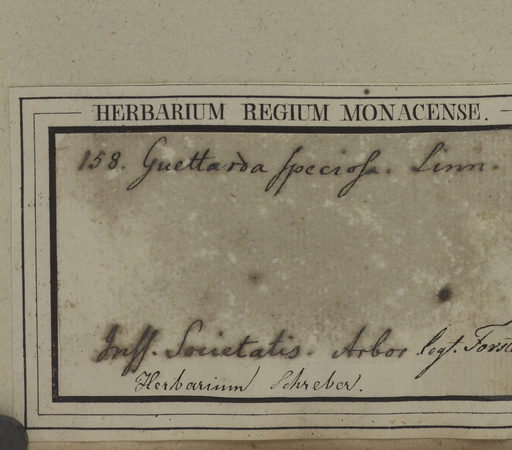 HERBARIUM REGIUM MONACENSE.
158. Guettarda speciosa. Linn.
Inss. Societatis. Arbor legt. Forst
Herbarium Schreber.